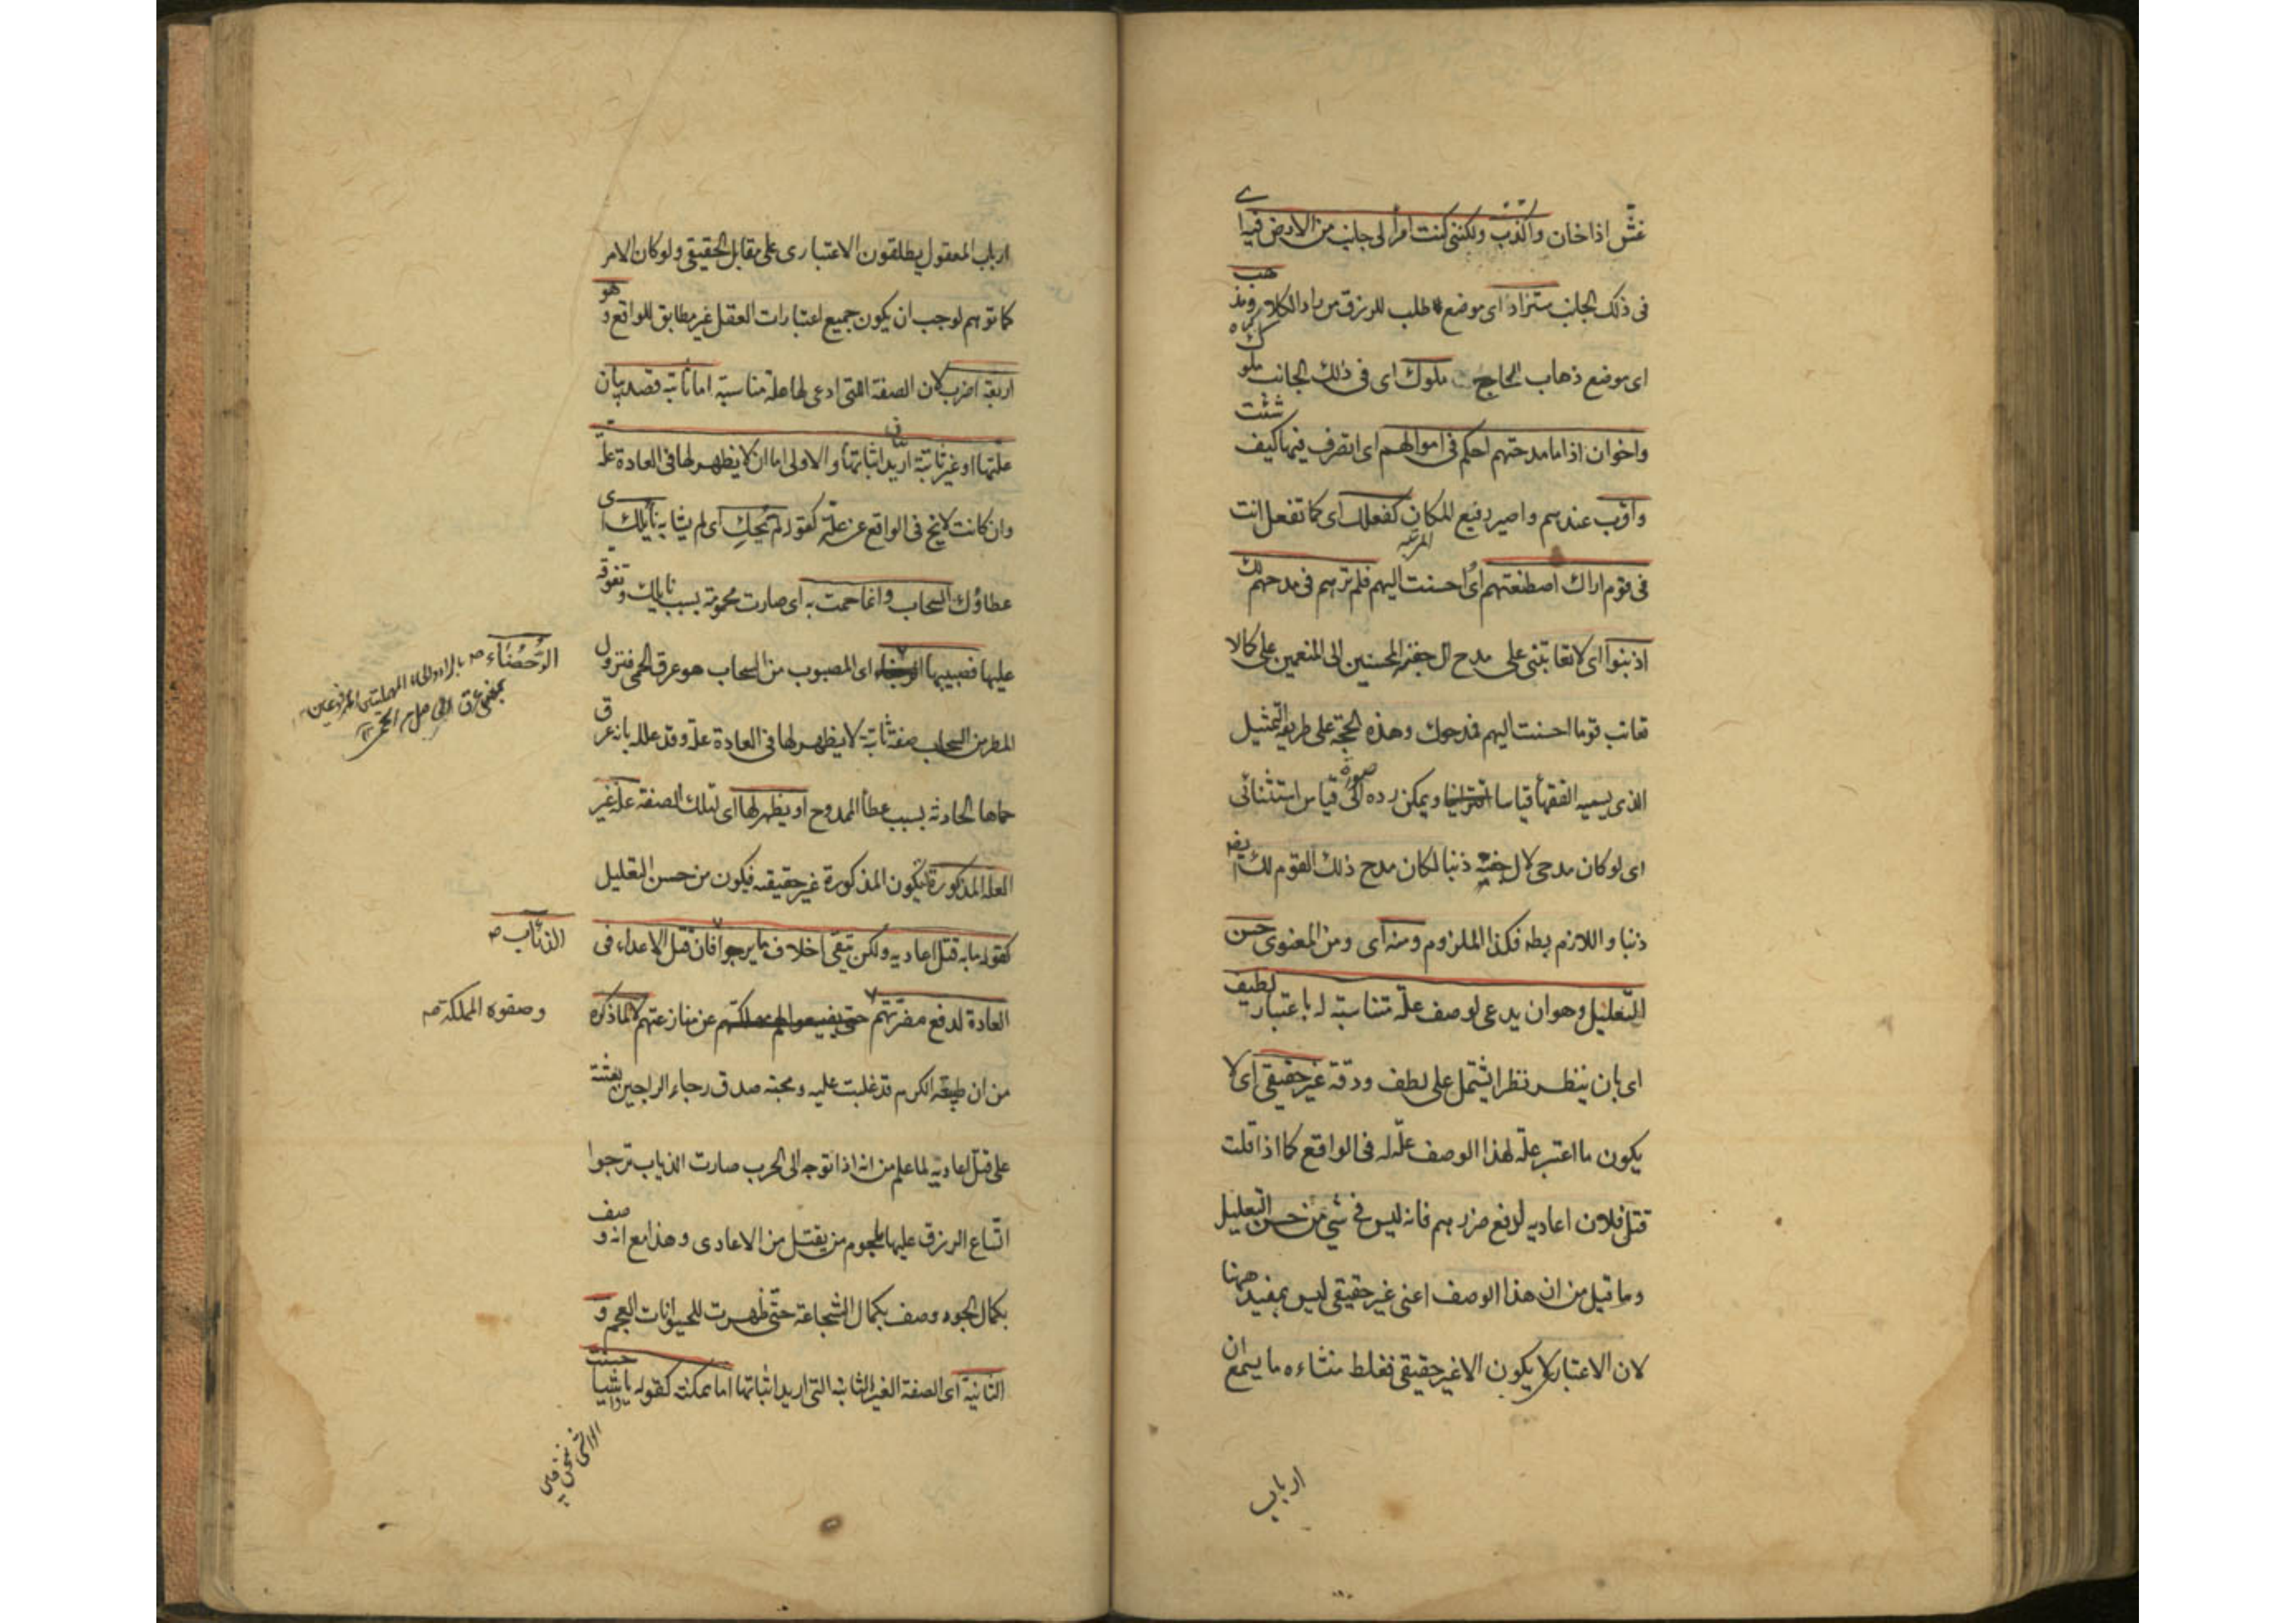 غشّ اذا خان واكذب ولكننى كنت امرأ لى جانب من الارض فيه ا
ى
فى ذلك الجانب مستراد اى موضع طلب للرزق من راد الكلاء ومذ
هب
اى موضع ذهاب الحاج ملوك اى فى ذلك الجانب ملو
ك
واخوان اذا ما مدحتهم احكم فى اموالهم اى اتصرف فيها كيف
شئت
واقرب عندهم واصير رفيع المكان كفعلك اى كما تفعل انت
المرتبة
فى قوم اراك اصطنعتهم اى احسنت اليهم فلم ترهم فى مدحهم لك
اذنبوا اى لا تعاتبنى على مدح ال جفنه المحسنين الى المنعمين على كما لا
تعاتب قوما احسنت اليهم فمدحوك وهذه الحجة على طريقة التمثيل
الذى يسميه الفقهاء قياسا ويمكن رده الى صورة قياس استثنائى
اى لو كان مدحى لال جفنه ذنبا لكان مدح ذلك القوم لك ايضا
ذنبا واللازم بط فكذا الملزوم ومنه اى ومن المعنوى حسن
التعليل وهو ان يدعى لوصف علة مناسبة له باعتبار لطيف
اى بان ينظر نظرا يشتمل على لطف ودقة غير حقيقى اى لا
يكون ما اعتبر علّة لهذا الوصف علّة له فى الواقع كما اذا قلت
قتل فلان اعاديه لدفع ضررهم فانه ليس فى شئ من حسن التعليل
وما قيل من ان هذا الوصف اعنى غير حقيقى ليس بمفيد ههنا
لان الاعتبار لا يكون الا غير حقيقى فغلط منشاءه ما يسمع ان
ارباب
ارباب المعقول يطلقون الاعتبارى على مقابل الحقيقى ولو كان الامر
كما توهم لوجب ان يكون جميع اعتبارات العقل غير مطابق للواقع و
هو
اربعة اضرب لان الصفة التى ادعى لها علة مناسبة اما ثابتة قصد بيان
علّتها او غير ثابتة اريد اثباتها والاولى اما ان لا يظهر لها فى العادة علّة
وان كانت لا تخ فى الواقع عن علّة كقوله لم تحكِ اى لم يشابه نائلك ا
ى
عطاؤك السحاب وانما حمت به اى صارت محمومة بسبب نايلك وتفوقه
عليها فصبيبها اى المصبوب من السحاب هو عرق الحمى فنزول
الرُّحَضَاء صه بالراء والحاء المهملتين
بمعنى عرق الحمى
المطر من السحاب صفة ثابتة لا يظهر لها فى العادة علة وقد علله بانه عر
ق
حماها الحادثة بسبب عطاء الممدوح او يظهر لها اى لتلك الصفة علة غير
العلة المذكورة ليكون المذكورة غير حقيقيه فيكون من حسن التعليل
كقوله ما به قتل اعاديه ولكن يتقى اخلاف ما يرجوا فان قتل الاعداء فى
الذئاب صه
العادة لدفع مضرتهم عن منازعتهم لا لما ذكره
وصفوة المملكة صه
من ان طبيعة الكرم قد غلبت عليه ومحبة صدق رجاء الراجين بعثته
على قتل اعاديه لما علم من انه اذا توجه الى الحرب صارت الذياب ترجوا
اتّساع الرزق عليها بلحوم من يقتل من الاعادى وهذا مع انه و
صف
بكمال الجود وصف بكمال الشجاعة حتّى ظهرت للحيوانات العجم و
الثانية اى الصفة الغير الثابتة التى اريد اثباتها اما ممكنة كقوله يا واشيا
حسنت